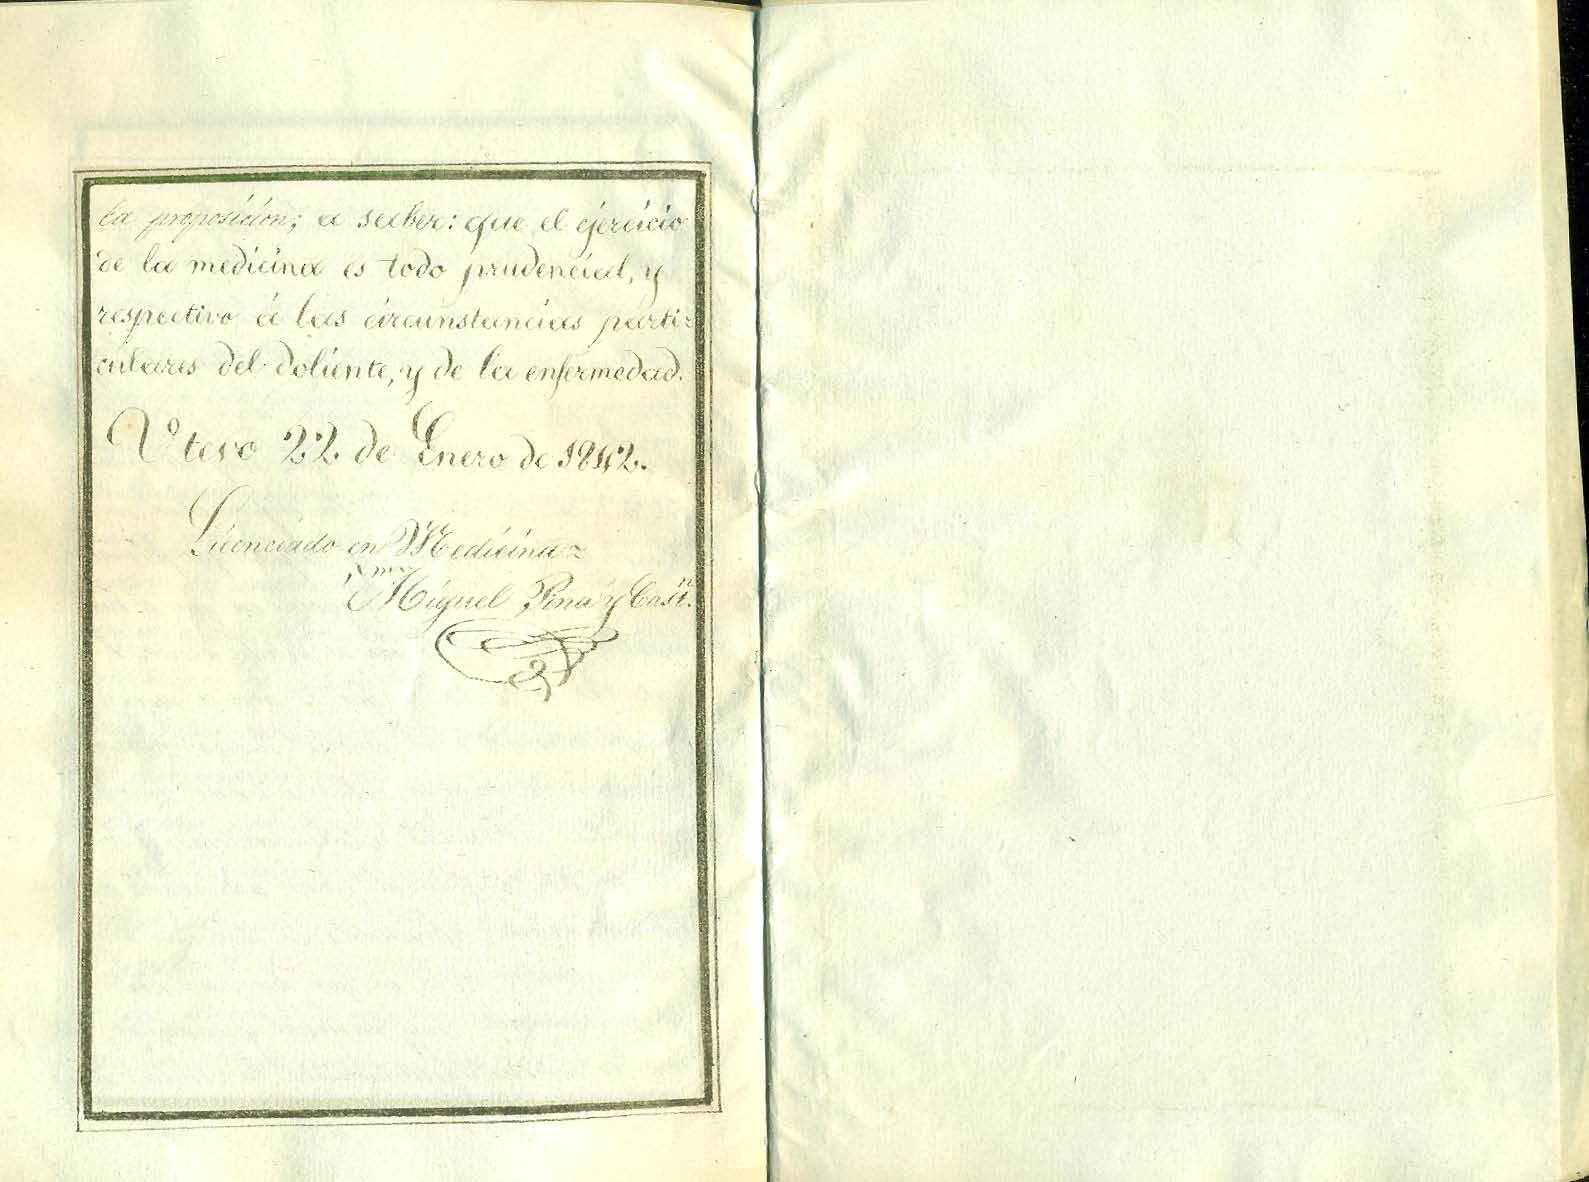 ta proposicion; a saber: que el ejercicio
de la medicina es todo prudencial, y
respectivo á las circunstancias parti-
culares del doliente, y de la enfermedad.
22 de Enero de 1842.
Licenciado en Medicina
Miguel Pina y Cast.n